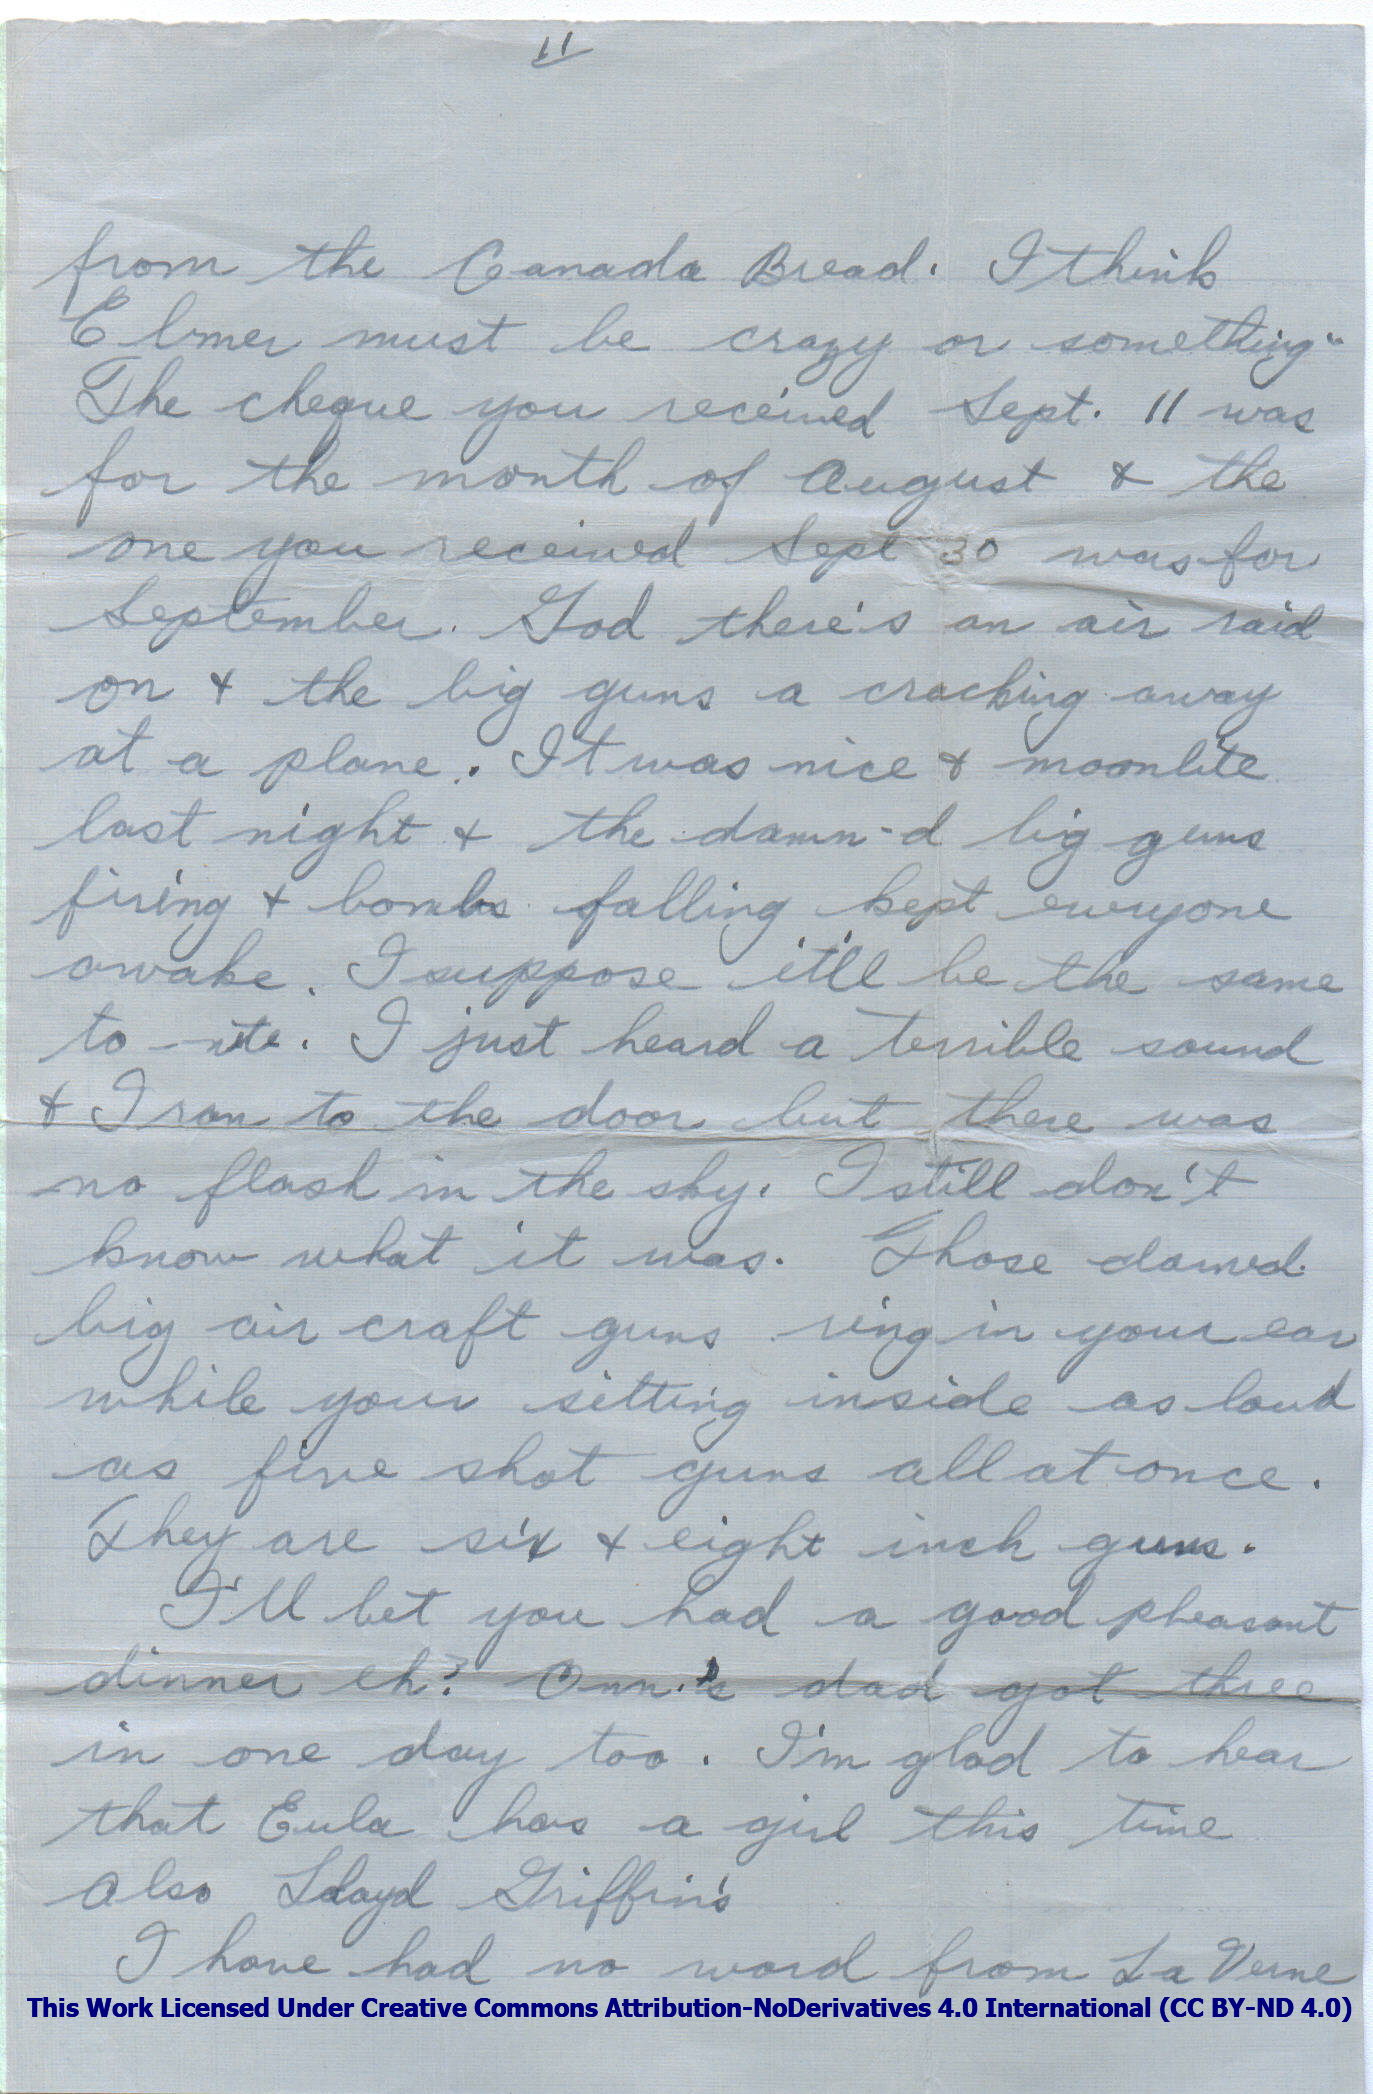 11
from the Canada Bread. I think
Elmer must be crazy or something"
The cheque you received Sept. 11 was
for the month of August & the
one you received Sept 30 was for
September. God there's an air raid
on & the big guns a cracking away
at a plane. It was nice & moonlite
last night & the damn-d big guns
firing & bombs falling kept everyone
awake. I suppose it'll be the same
to-nite. I just heard a terrible sound
& I ran to the door but there was
no flash in the sky. I still don't
know what it was. Those damed
big air craft guns ring in your ear
while your sitting inside as loud
as five shot guns all at once.
They are six & eight inch guns.
I'll bet you had a good pheasant
dinner eh? dad got three
in one day too. I'm glad to hear
that Eula has a girl this time
also Lloyd Griffin's
I have had no word from La Verne
This Work Licensed Under Creative Commons Attribution-NoDerivatives 4.0 International (CC BY-ND 4.0)